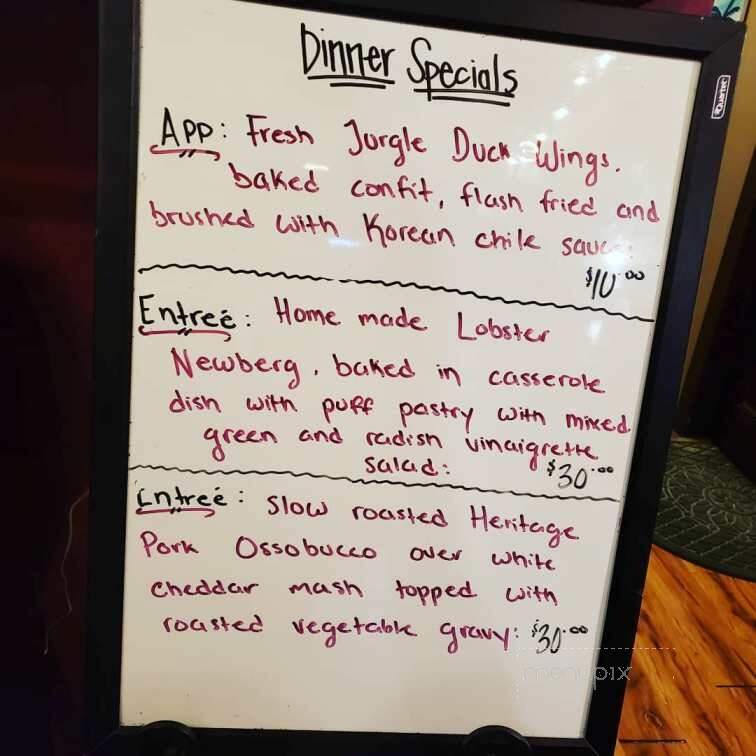 Dinner Specials
Quartet
App: Fresh Jurgle Duck Wings.
baked confit, flash fried and
brushed with Korean chile sauce:
$10.00
Entreé: Home made Lobster
Newberg, baked in casserole
dish with puff pastry with mixed
green and radish vinaigrette
salad: $30.00
Entreé: Slow roasted Heritage
Pork Ossobucco over white
cheddar mash topped with
roasted vegetable gravy: $30.00
menupix